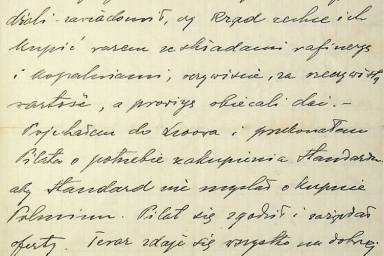 dzieli zawiadomił, czy Rząd zechce ich
kupić razem ze składami rafinery
i kopalniami, oczywiście, za rzeczywistą
wartość, a prowizyę obiecali dać. –
Pojechałem do Lwowa i przekonałem
Pilata o potrzebie zakupienia Standardu
aby Standard nie myślał o kupnie
Polminu. Pilat się zgodził i zażądał
oferty. Teraz zdaje się wszystko na dobrej